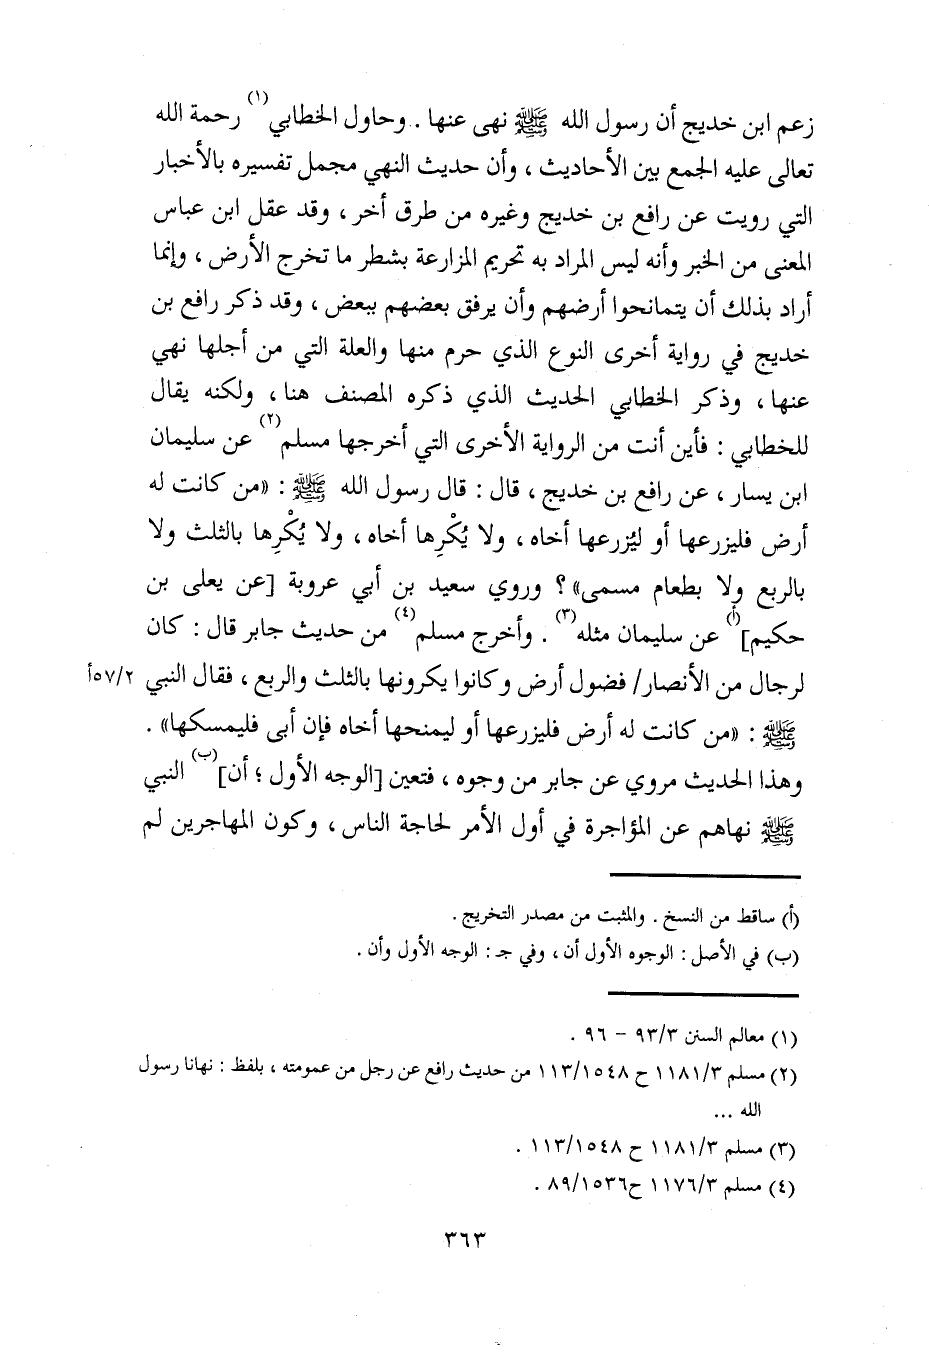 زعم ابن خديج أن رسول الله ﷺ نهى عنها . وحاول الخطابي(١) رحمة الله
تعالى عليه الجمع بين الأحاديث ، وأن حديث النهي مجمل تفسيره بالأخبار
التي رويت عن رافع بن خديج وغيره من طرق أخر ، وقد عقل ابن عباس
المعنى من الخبر وأنه ليس المراد به تحريم المزارعة بشطر ما تخرج الأرض ، وإنما
أراد بذلك أن يتمانحوا أرضهم وأن يرفق بعضهم ببعض ، وقد ذكر رافع بن
خديج في رواية أخرى النوع الذي حرم منها والعلة التي من أجلها نهي
عنها ، وذكر الخطابي الحديث الذي ذكره المصنف هنا ، ولكنه يقال
للخطابي : فأين أنت من الرواية الأخرى التي أخرجها مسلم(٢) عن سليمان
ابن يسار ، عن رافع بن خديج ، قال : قال رسول الله ﷺ : «من كانت له
أرض فليزرعها أو ليُزرعها أخاه ، ولا يُكْرِها أخاه ، ولا يُكْرِها بالثلث ولا
بالربع ولا بطعام مسمى» ؟ وروي سعيد بن أبي عروبة [عن يعلى بن
حكيم](أ) عن سليمان مثله(٣) . وأخرج مسلم(٤) من حديث جابر قال : كان
لرجال من الأنصار/ فضول أرض وكانوا يكرونها بالثلث والربع ، فقال النبي ٥٧/٢أ
ﷺ : «من كانت له أرض فليزرعها أو ليمنحها أخاه فإن أبى فليمسكها» .
وهذا الحديث مروي عن جابر من وجوه ، فتعين [الوجه الأول ؛ أن](ب) النبي
ﷺ نهاهم عن المؤاجرة في أول الأمر لحاجة الناس ، وكون المهاجرين لم
(أ) ساقط من النسخ . والمثبت من مصدر التخريج .
(ب) في الأصل : الوجوه الأول أن ، وفي جـ : الوجه الأول وأن .
(١) معالم السنن ٩٣/٣ – ٩٦ .
(٢) مسلم ١١٨١/٣ ح ١١٣/١٥٤٨ من حديث رافع عن رجل من عمومته ، بلفظ : نهانا رسول
الله ...
(٣) مسلم ١١٨١/٣ ح ١١٣/١٥٤٨ .
(٤) مسلم ١١٧٦/٣ ح٨٩/١٥٣٦ .
٣٦٣